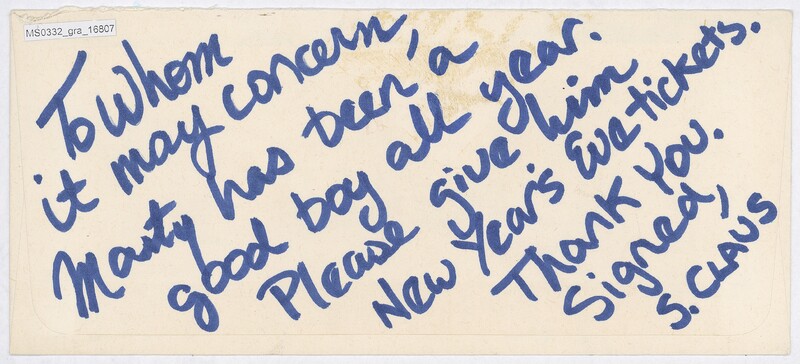 MS0332_gra_16807
To Whom
it may concern,
Marty has been a
good boy all year.
Please give him
New Year's Eve tickets.
Thank You.
Signed,
S. CLAUS